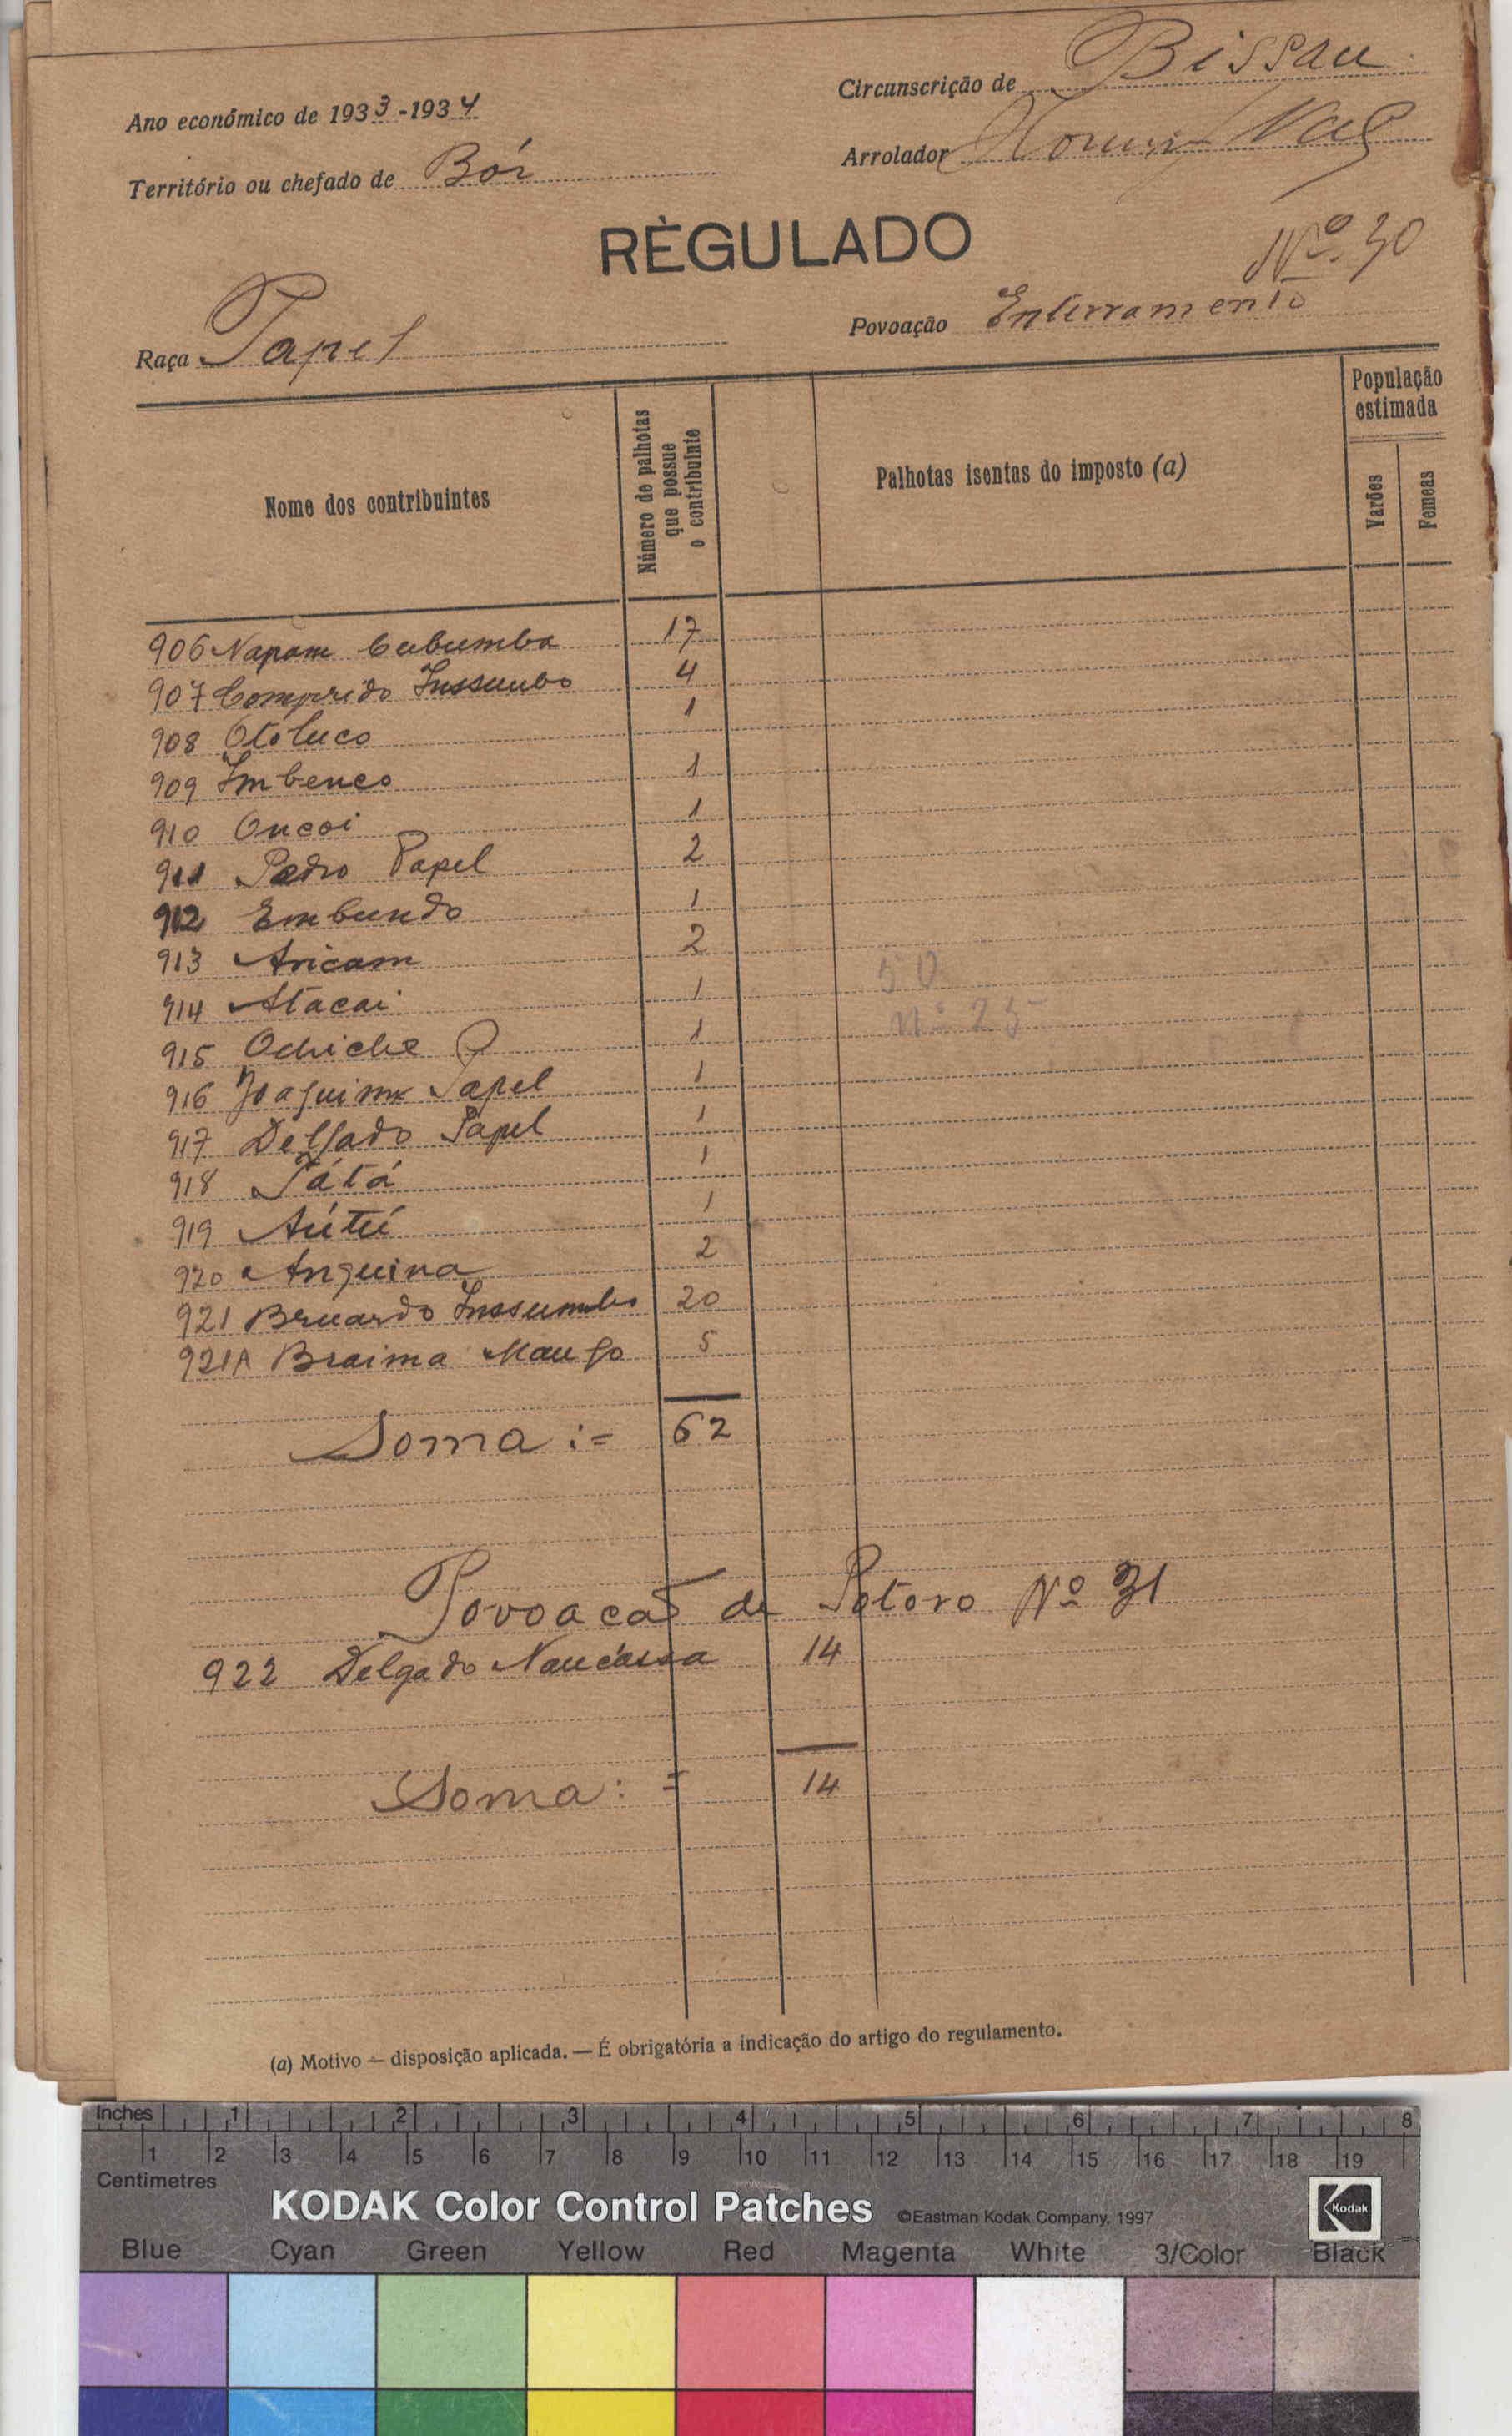 Circunscrição de Bissau
Ano económico de 1933-1934
Arrolador
Território ou chefado de Bór
RÈGULADO
Nº. 30
Raça Papel
Povoação Enterramento
Nome dos contribuintes
Número de palhotas que possue o contribuinte
Palhotas isentas do imposto (a)
População estimada
Varões
Femeas
906 Napam Cubumba 17
907 Comprido Inssumbo 4
908 Otoluco 1
909 Imbenco 1
910 Oncoi 1
911 Pedro Papel 2
912 Embundo 1
913 Aricam 2
914 Atacai 1
915 Ochiche P 1
916 Joaquim Papel 1
917 Delgado Papel 1
918 Tátá 1
919 Aútú 1
920 Anguina 2
921 Bernardo Inssumbo 20
921A Braima Mango 5
50
Nº 25
Soma := 62
Povoacão de Potoro Nº 31
922 Delgado Naucássa 14
Soma := 14
(a) Motivo — disposição aplicada. — É obrigatória a indicação do artigo do regulamento.
Inches 1 2 3 4 5 6 7 8
1 2 3 4 5 6 7 8 9 10 11 12 13 14 15 16 17 18 19
Centimetres
KODAK Color Control Patches ©Eastman Kodak Company, 1997
Kodak
Blue Cyan Green Yellow Red Magenta White 3/Color Black